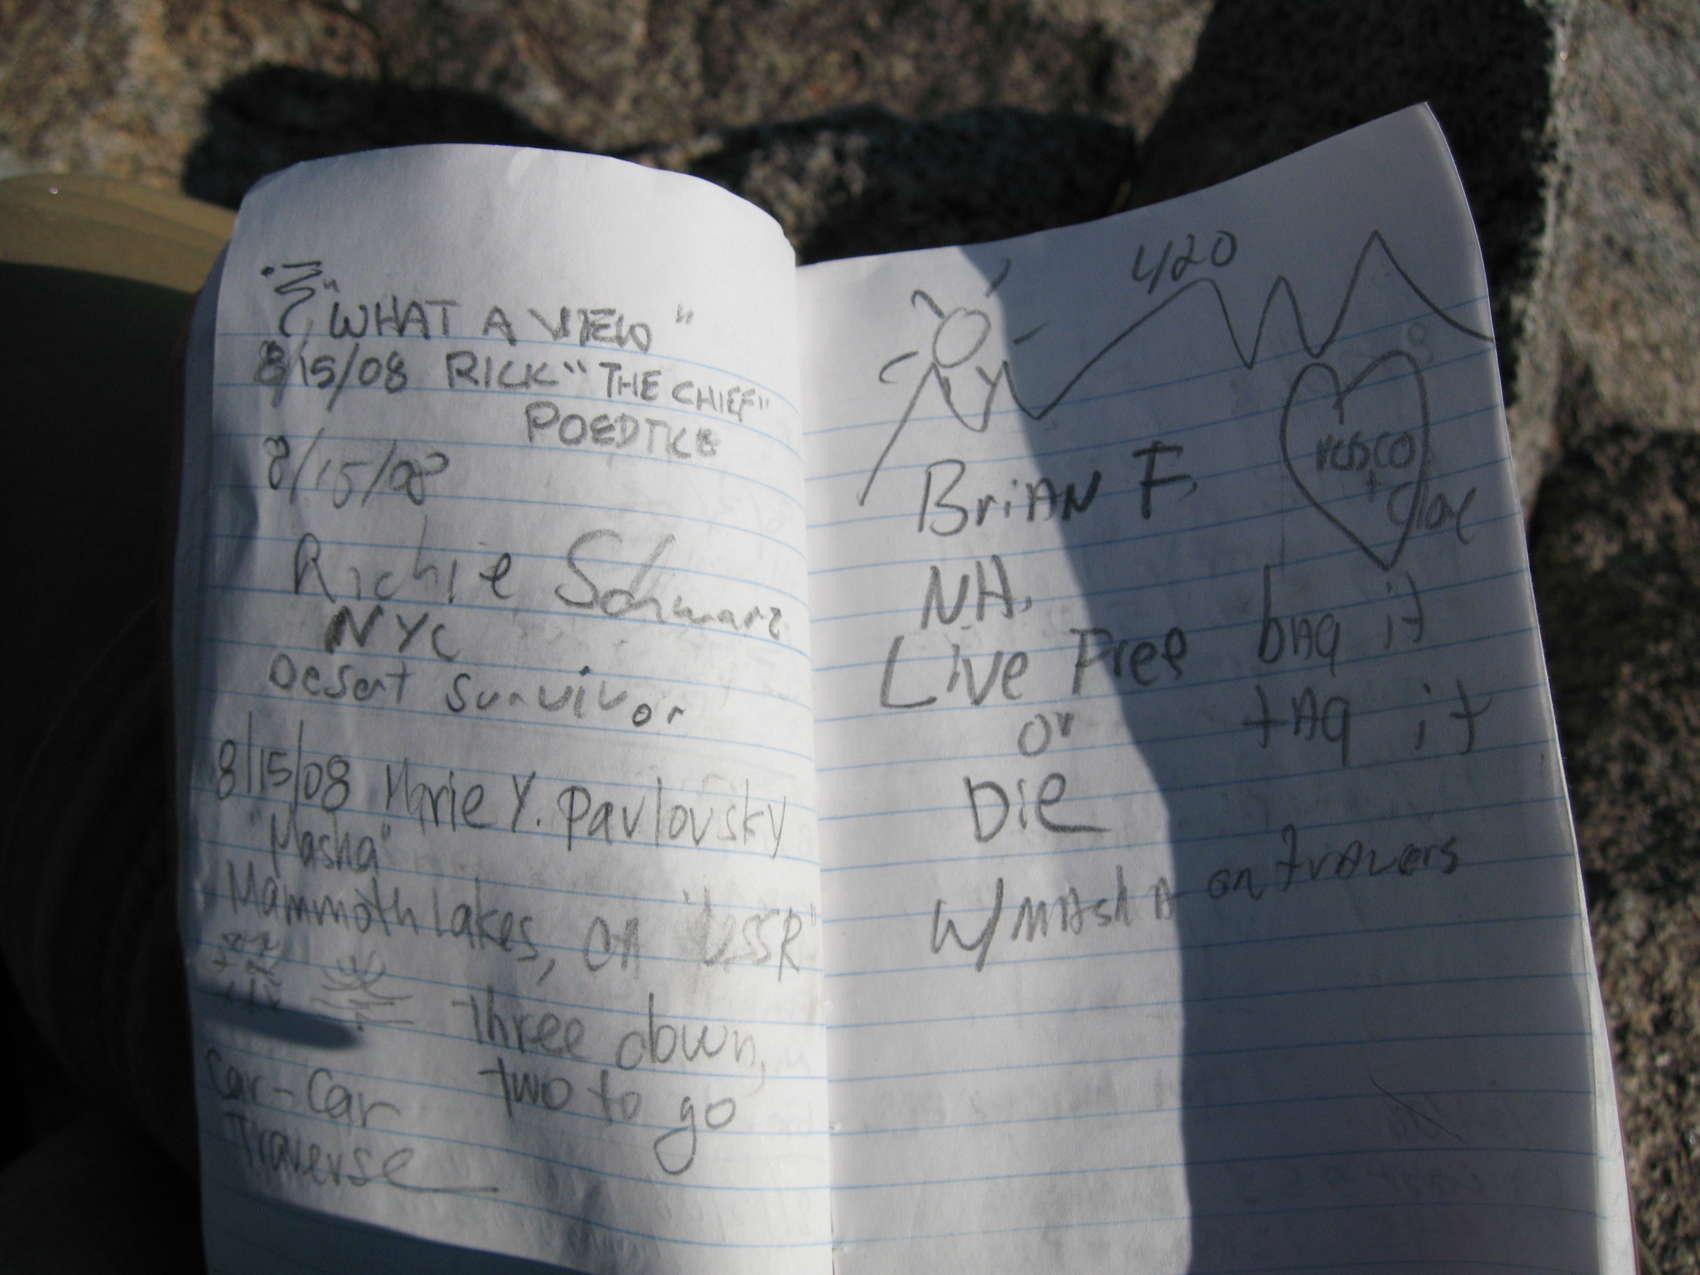 "WHAT A VIEW"
8/15/08 RICK "THE CHIEF"
8/15/08
Richie Schwarz
NYC
Desert Survivor
8/15/08 Marie Y. Pavlovsky
"Masha"
Mammoth Lakes, CA "USSR"
three down,
two to go
Car-Car
Traverse
420
Brian F.
NH.
Live Free
or
Die
bag it
tag it
W/ MAshA on trAvers